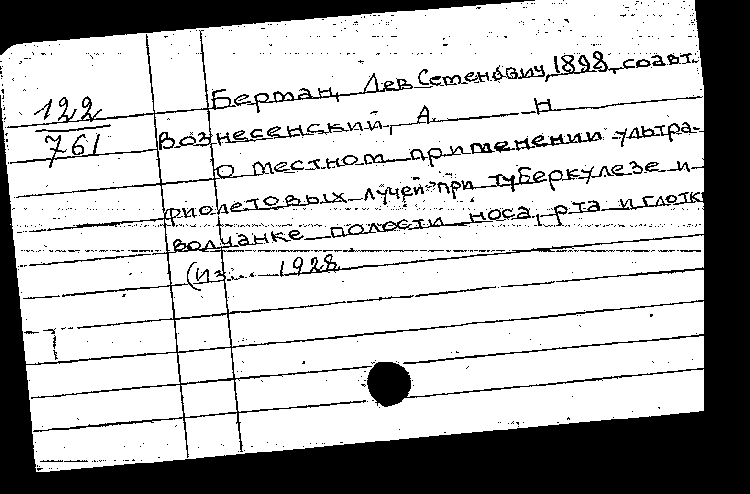 122
761
Берман, Лев Семенович, 1898, соавт.
Вознесенский, А. Н
О местном применении ультра-
фиолетовых лучей при туберкулезе и
волчанке полости носа, рта и глотк
(Из... 1928